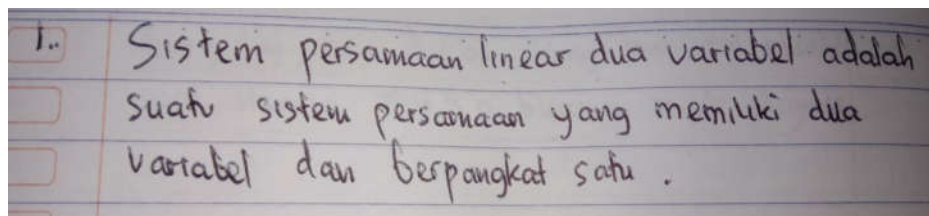 1.. Sistem persamaan linear dua variabel adalah
suatu sistem persamaan yang memiliki dua
variabel dan berpangkat satu.